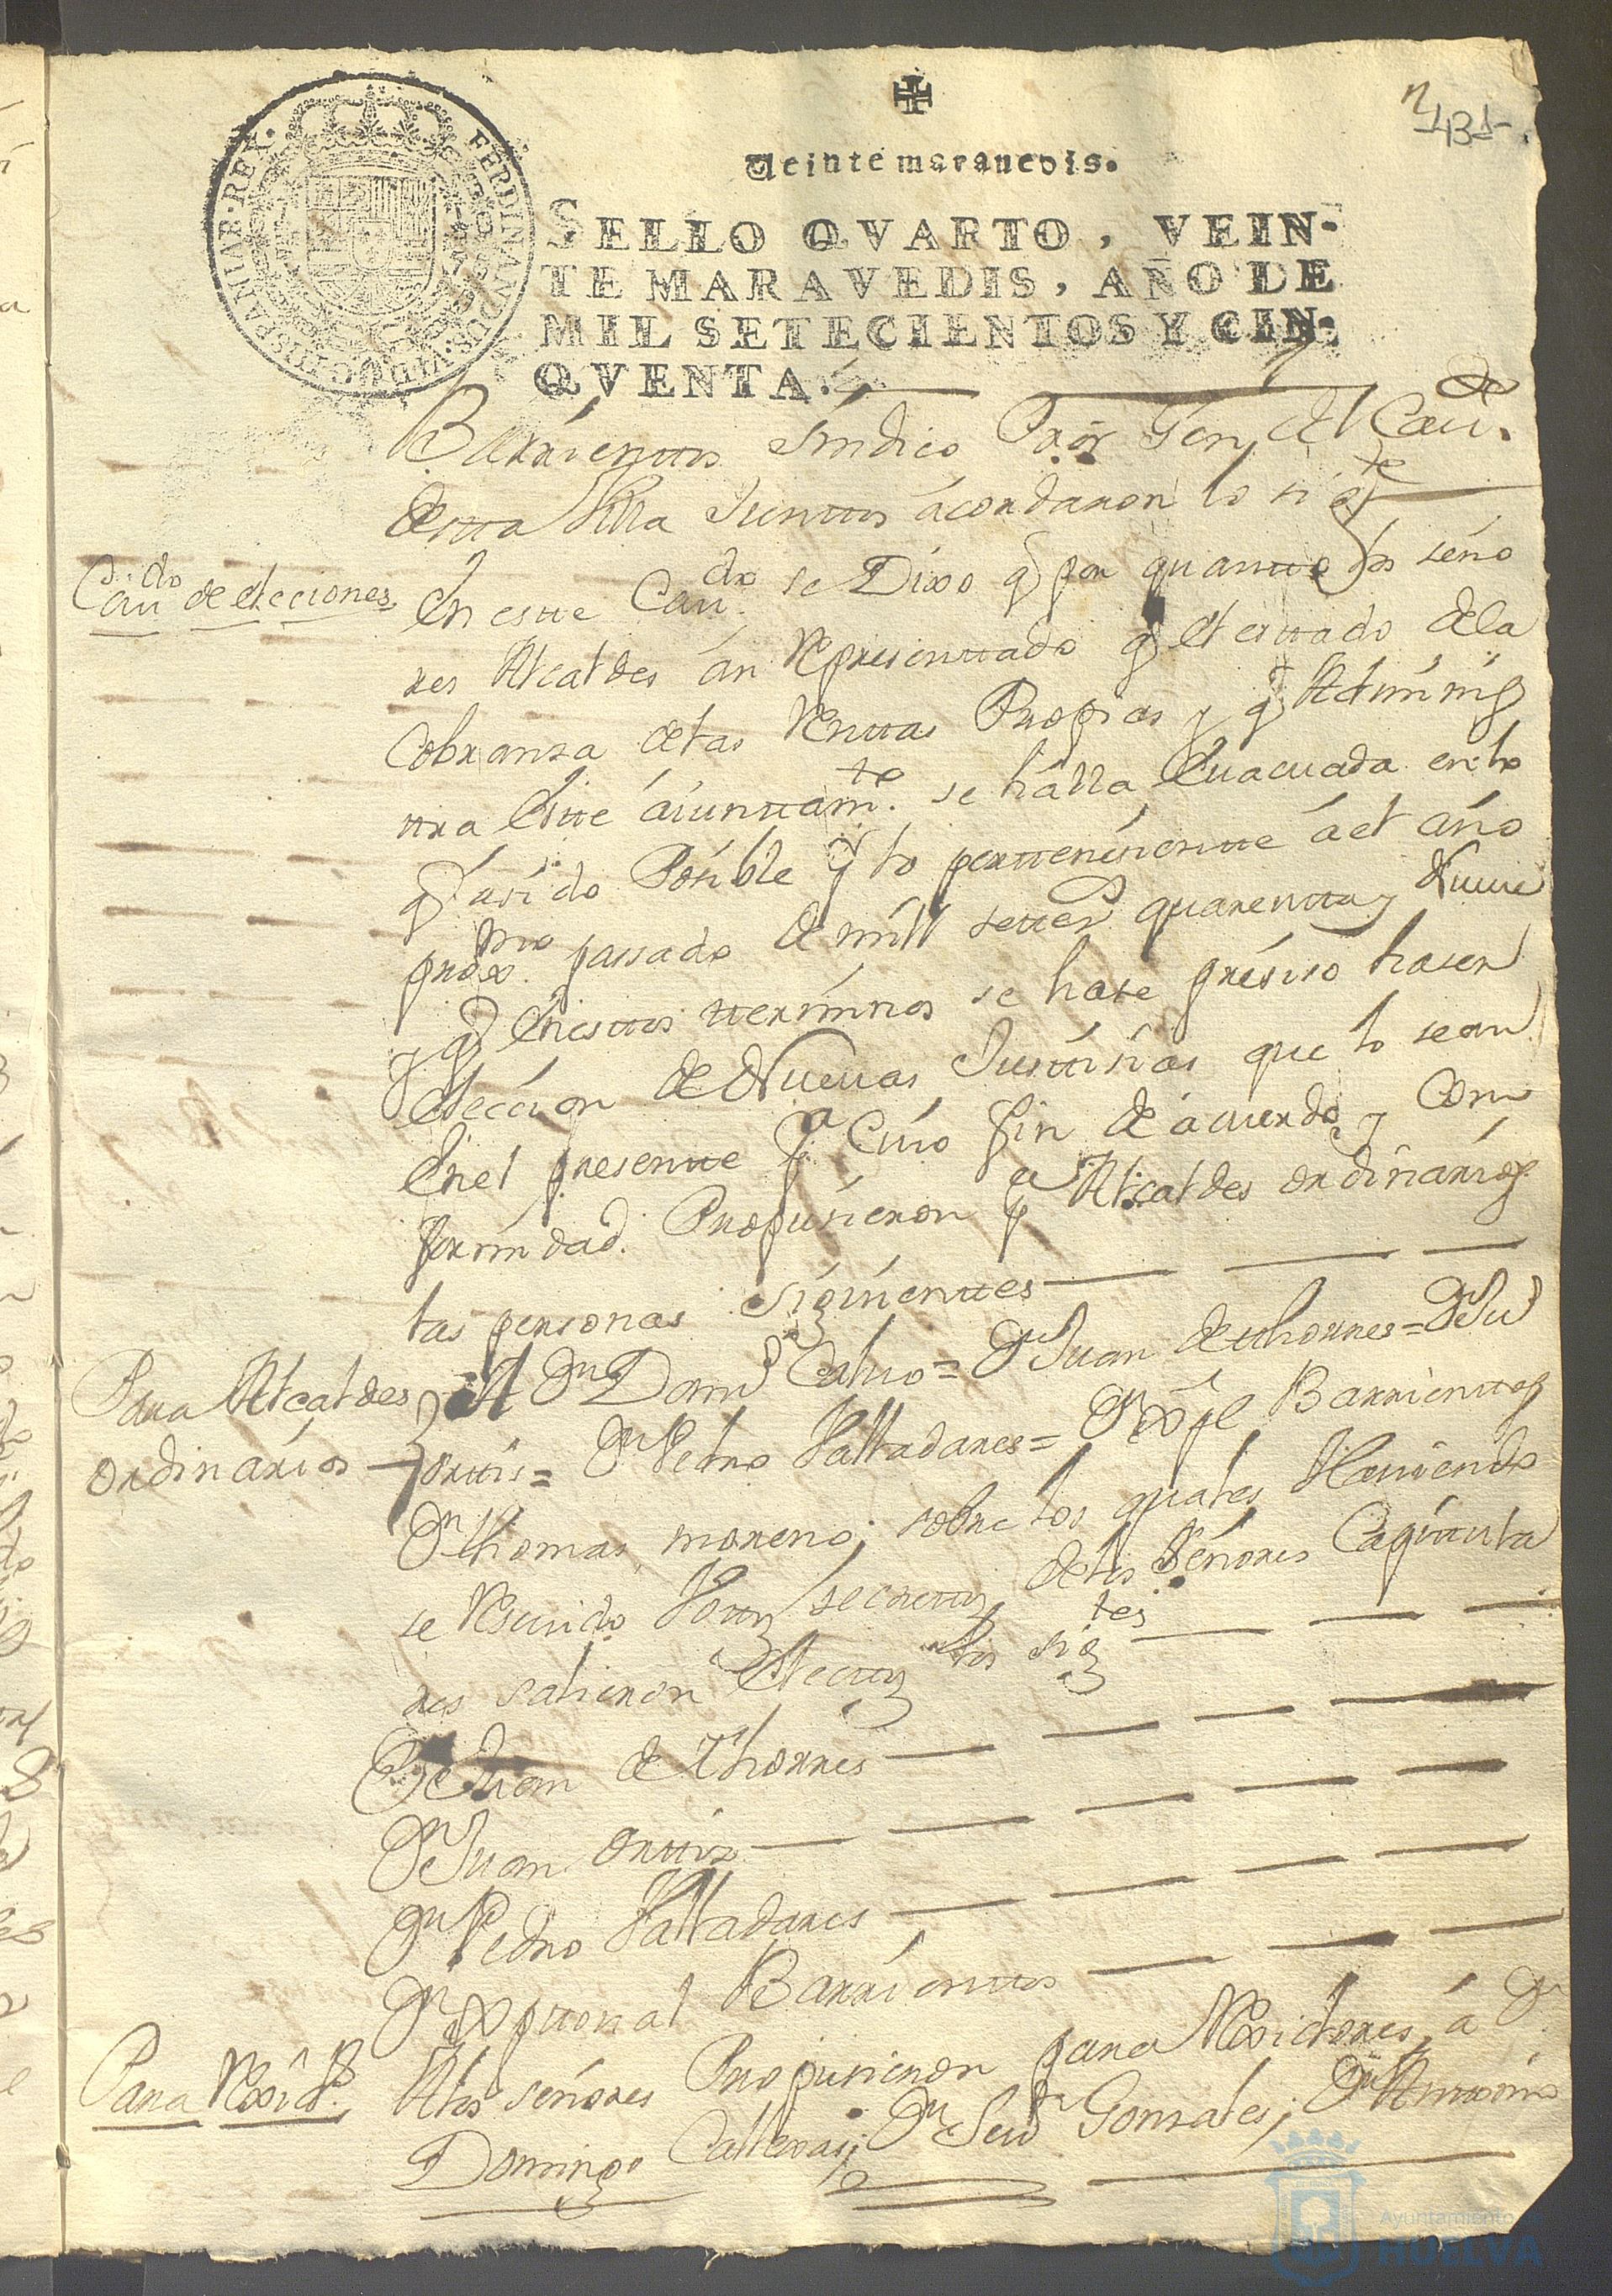 431
Veinte maravedis.
SELLO QVARTO, VEIN-
TE MARAVEDIS, AÑO DE
MIL SETECIENTOS Y CIN-
QVENTA.
FERDINANDUS VI D G HISPANIAR REX
Barrientos Sindico Pror Gen del Cavdo
desta Villa Juntos acordaron lo sigte
Cavdo de elecciones
En este Cavdo se Dixo q por quanto los seño
res Alcaldes an Representado q el estado dela
Cobranza delas Rentas Propias y q Adminis
tra Este aiuntamto se halla Evacuada en lo
q asido Posible q lo perteneciente ael año
proxmo passado de mill setecs quarenta y Nueve
y q Enestos terminos se hase presiso haser
Eleccion de Nuevas Justisias que lo sean
Enel presente pa Cuio fin de acuerdo y Con
formidad Propusieron pa Alcaldes ordinarios
las personas siguientes
Para Alcaldes
ordinarios
A Dn Domo Calvo = Dn Juan de thorres = Dn Ju
ortis = Dn Pedro Valladares = Dn Xpl Barrientos
Dn thomas moreno; sobre los quales Haviendo
se Resevido Votos secretos delos señores Capitula
res salieron Electos los sigtes
Dn Juan de Thorres
Dn Juan ortiz
Dn Pedro Valladares
Dn Xptoval Barrientos
Para Rexidres
Atos señores Propusieron para Rexidores, a Dn
Domingo Callexas; Dn Sevn Gonsales; Dn Antonio
Ayuntamiento de
HUELVA